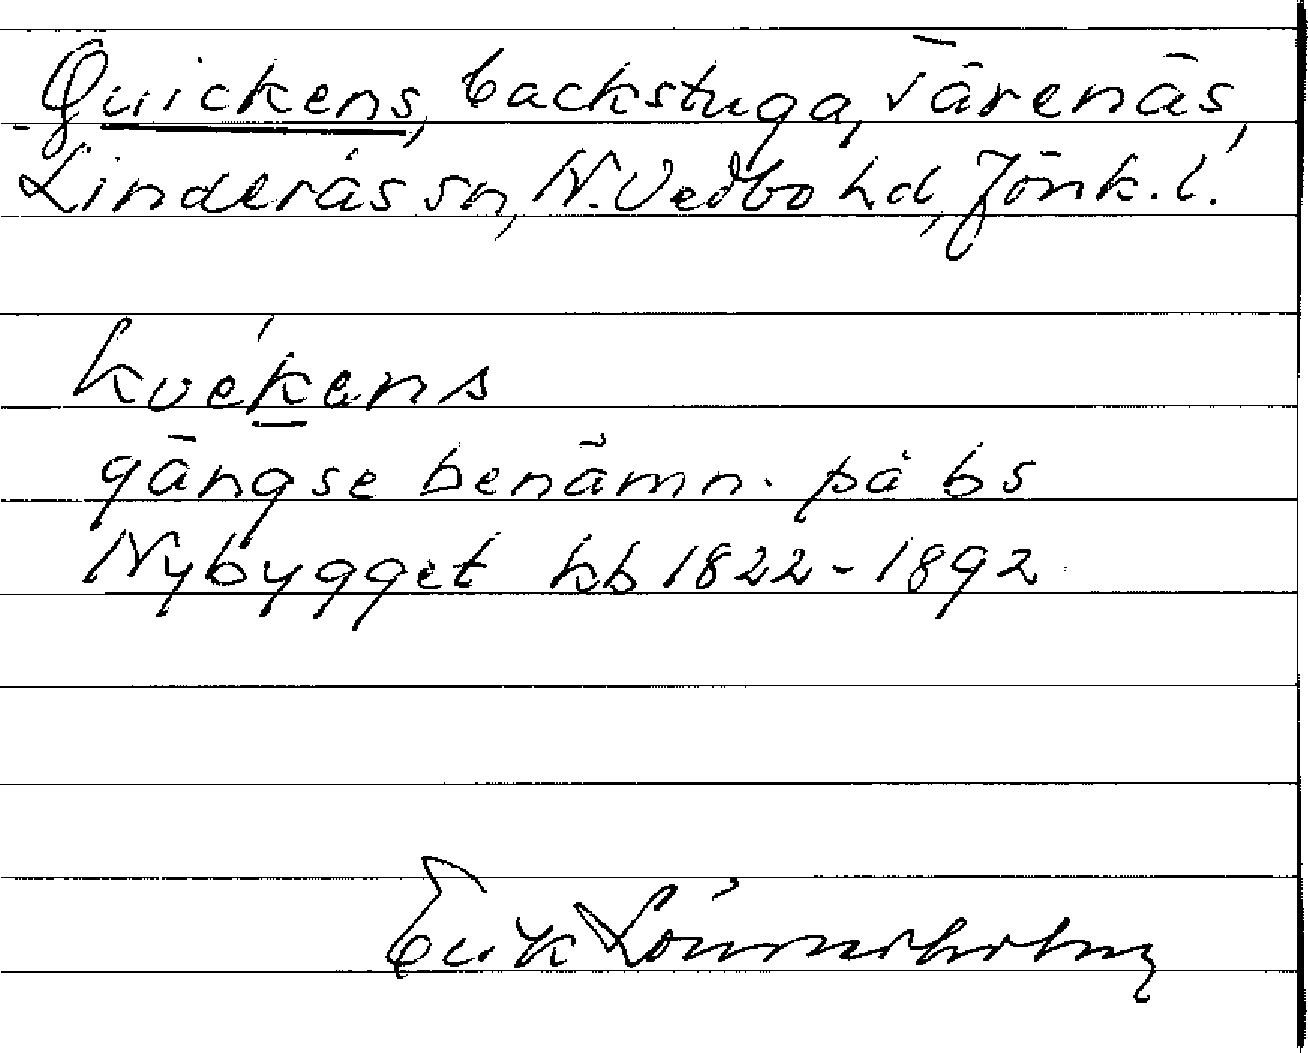 Quickens, backstuga, Tärenäs,
Linderås sn, N. Vedbo hd, Jönk. l.
kvékens
gängse benämn. på bs
Nybygget kb 1822-1892
Erik Lönnerholm